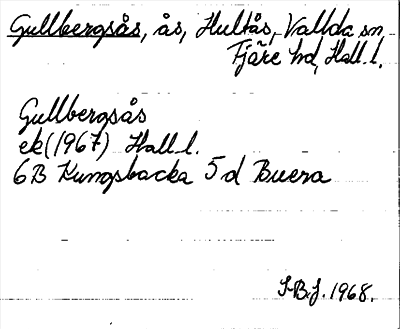 Gullbergsås, ås, Hultås, Vallda sn,
Fjäre hd, Hall. l.
Gullbergsås
ek (1967) Hall l.
6B Kungsbacka 5 d Buera
S.B.J. 1968.